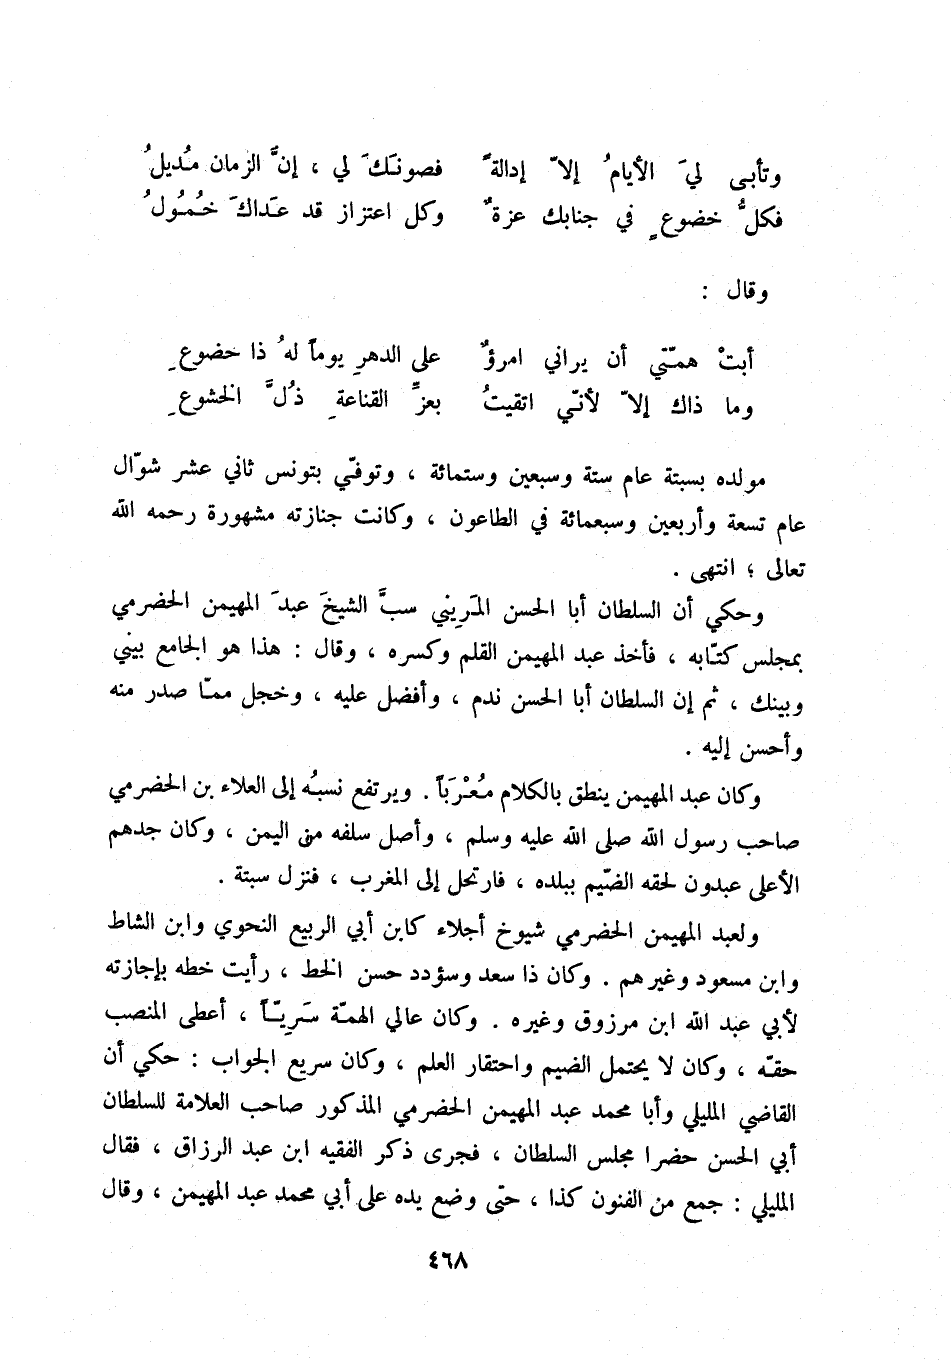 وتأبى ليَ الأيامُ إلاّ إدالةً فصونَكَ لي ، إنَّ الزمان مُديلُ
فكلُّ خضوعٍ في جنابك عزةٌ وكل اعتزاز قد عَداكَ خُمُولُ
وقال :
أبتْ همّتي أن يراني امرؤٌ على الدهرِ يوماً لهُ ذا خضوعِ
وما ذاك إلاّ لأنّي اتقيتُ بعزِّ القناعةِ ذُلَّ الخشوعِ
مولده بسبتة عام ستة وسبعين وستمائة ، وتوفّي بتونس ثاني عشر شوّال
عام تسعة وأربعين وسبعمائة في الطاعون ، وكانت جنازته مشهورة رحمه الله
تعالى ؛ انتهى .
وحكي أن السلطان أبا الحسن المَريني سبَّ الشيخَ عبدَ المهيمن الحضرمي
بمجلس كتّابه ، فأخذ عبد المهيمن القلم وكسره ، وقال : هذا هو الجامع بيني
وبينك ، ثم إن السلطان أبا الحسن ندم ، وأفضل عليه ، وخجل ممّا صدر منه
وأحسن إليه .
وكان عبد المهيمن ينطق بالكلام مُعْرَباً . ويرتفع نسبُه إلى العلاء بن الحضرمي
صاحب رسول الله صلى الله عليه وسلم ، وأصل سلفه من اليمن ، وكان جدهم
الأعلى عبدون لحقه الضّيم ببلده ، فارتحل إلى المغرب ، فنزل سبتة .
ولعبد المهيمن الحضرمي شيوخ أجلاء كابن أبي الربيع النحوي وابن الشاط
وابن مسعود وغيرهم . وكان ذا سعد وسؤدد حسن الخط ، رأيت خطه بإجازته
لأبي عبد الله ابن مرزوق وغيره . وكان عالي الهمّة سَرِيّاً ، أعطى المنصب
حقّه ، وكان لا يحتمل الضيم واحتقار العلم ، وكان سريع الجواب : حكي أن
القاضي المليلي وأبا محمد عبد المهيمن الحضرمي المذكور صاحب العلامة للسلطان
أبي الحسن حضرا مجلس السلطان ، فجرى ذكر الفقيه ابن عبد الرزاق ، فقال
المليلي : جمع من الفنون كذا ، حتّى وضع يده على أبي محمد عبد المهيمن ، وقال
٤٦٨